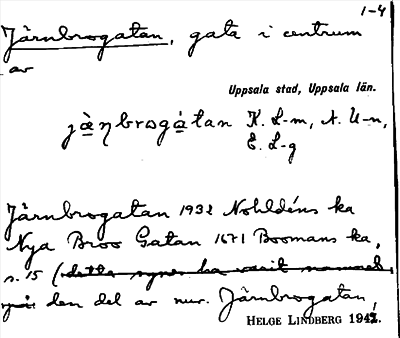 1-4
Järnbrogatan, gata i centrum
av
Uppsala stad, Uppsala län.
jä̀ηbrogá̀tan K. L-m, A. U-n,
E. L-g
Järnbrogatan 1932 Nohldéns ka
Nya Broo Gatan 1671 Boomans ka,
s. 15 (detta synes ha varit namnet
på den del av nuv. Järnbrogatan,
HELGE LINDBERG 1942.